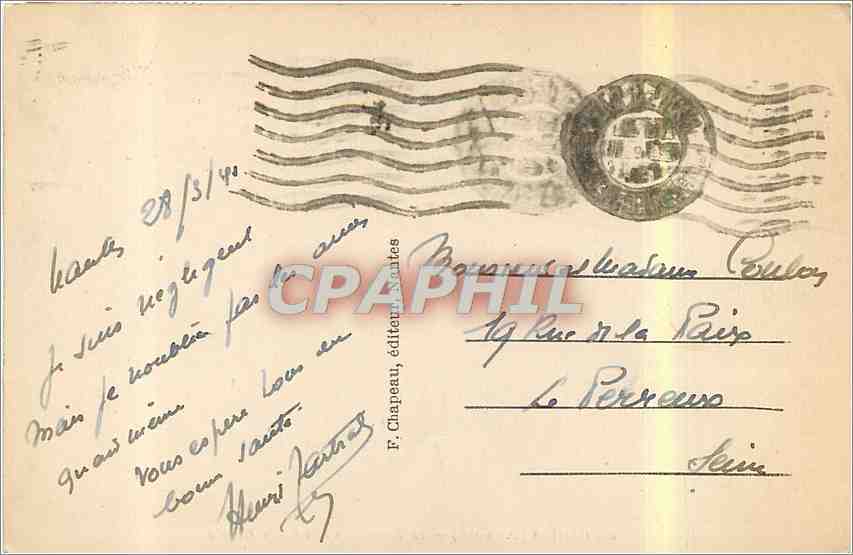 Nantes 28/3/40
Je suis négligent
Mais je n'oublie pas les amis
quand même
Vous espère tous en
bonne santé.
Henri
F. Chapeau, éditeur, Nantes
CPAPHIL
Monsieur et Madame
19 Rue de la Paix
Le Perreux
Seine